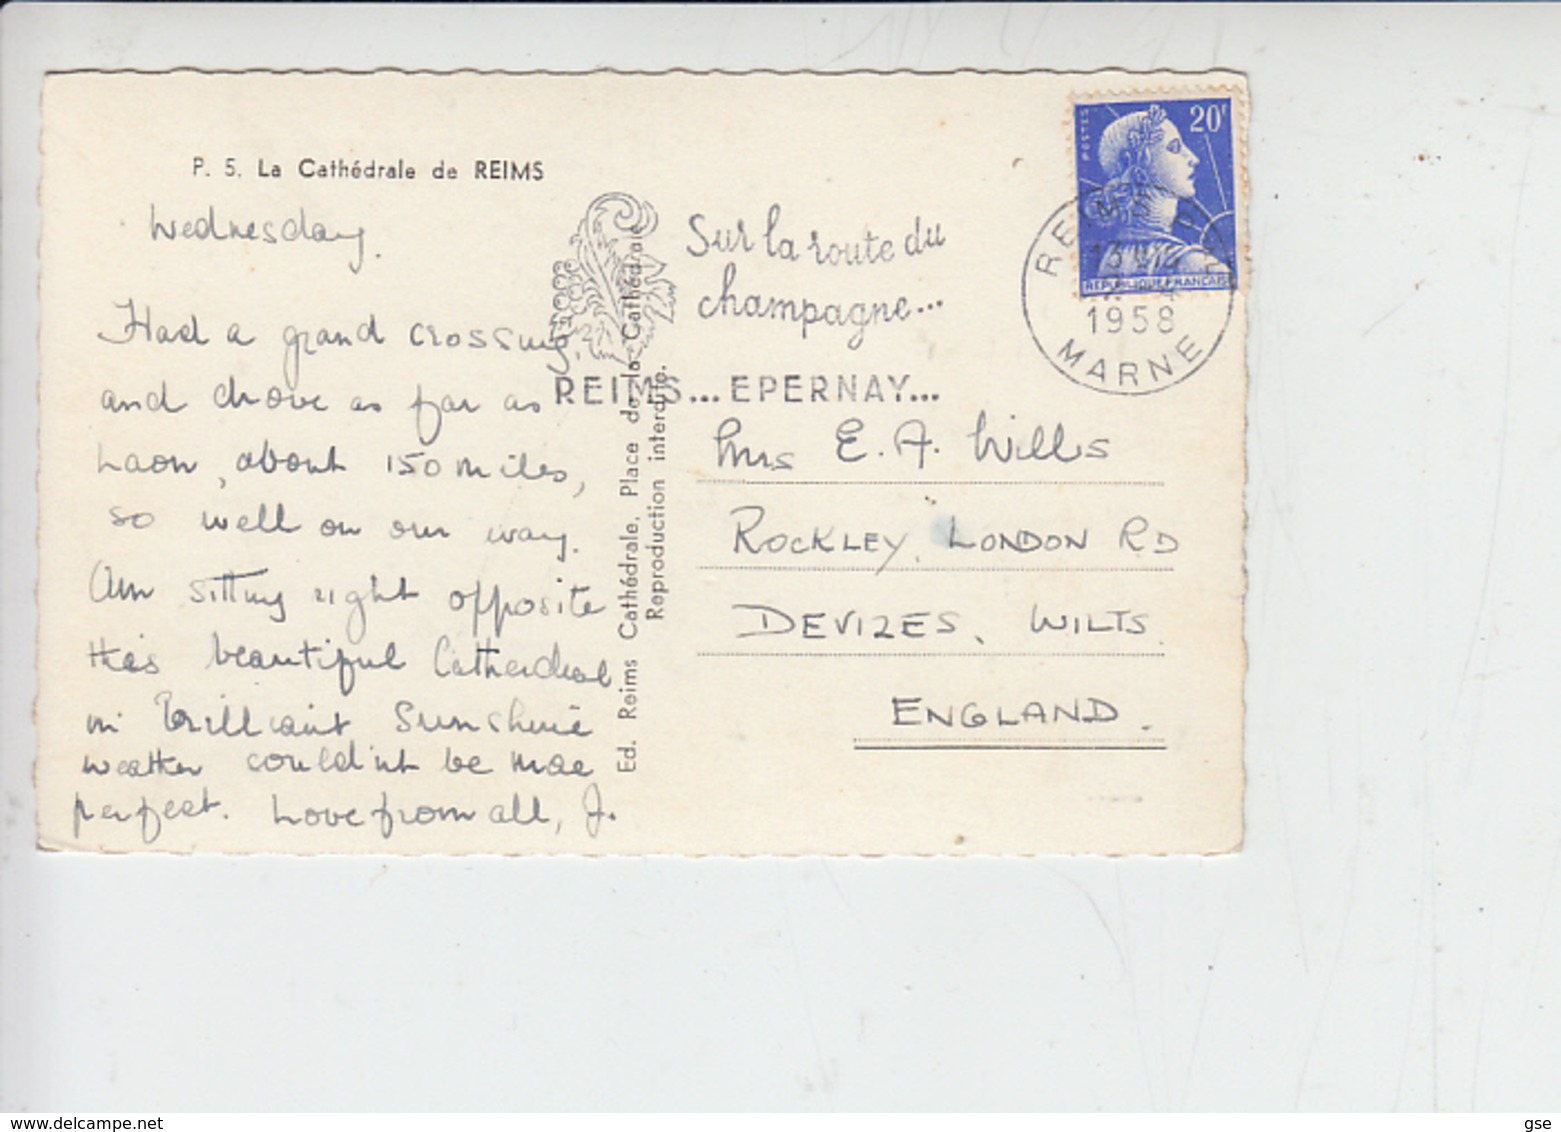 P. 5. La Cathédrale de REIMS
Wednesday.
Had a grand crossing,
and drove as far as
Laon, about 150 miles,
so well on our way.
Am sitting right opposite
this beautiful Cathedral
in brilliant Sunshine
weather couldn't be more
perfect. Love from all, J.
Ed. Reims Cathédrale, Place de la Cathédrale
Reproduction interdite.
Sur la route du
champagne...
REIMS... EPERNAY...
POSTES
20F
REPUBLIQUE FRANÇAISE
REIMS
1958
MARNE
Mrs E. A. Wills
ROCKLEY, LONDON RD
DEVIZES, WILTS.
ENGLAND.
www.delcampe.net
gse